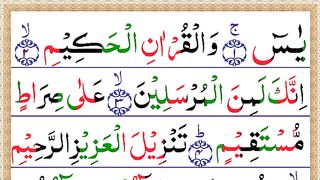 یٰسٓ ۚ﴿۱﴾ وَالْقُرْاٰنِ الْحَكِیْمِ ۙ﴿۲﴾
اِنَّكَ لَمِنَ الْمُرْسَلِیْنَ ۙ﴿۳﴾ عَلٰی صِرَاطٍ
مُّسْتَقِیْمٍ ؕ﴿۴﴾ تَنْزِیْلَ الْعَزِیْزِ الرَّحِیْمِ